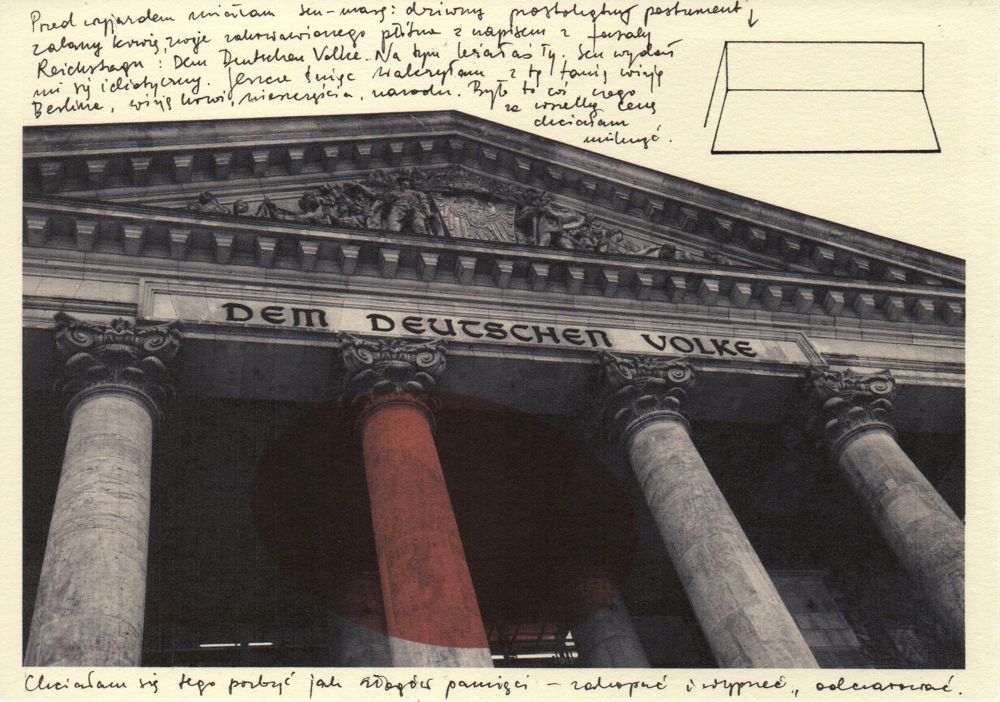 Przed wyjazdem miałam sen-marę: dziwny prostokątny postument
zalany krwią, zwoje zakrwawionego płótna z napisem z fasady
Reichstagu: Dem Deutschen Volke. Na tym leżałaś Ty. Sen wydał
mi się idiotyczny. Jeszcze śniąc walczyłam z tą tanią wizją
Berlina, wizją krwi, nieszczęścia, narodu. Było to coś czego
za wszelką cenę
chciałam
uniknąć.
DEM DEUTSCHEN VOLKE
Chciałam się tego pozbyć jak złogów pamięci – zakopać i wyprzeć, odczarować.